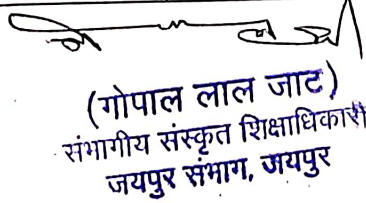 (गोपाल लाल जाट)
संभागीय संस्कृत शिक्षाधिकारी
जयपुर संभाग, जयपुर